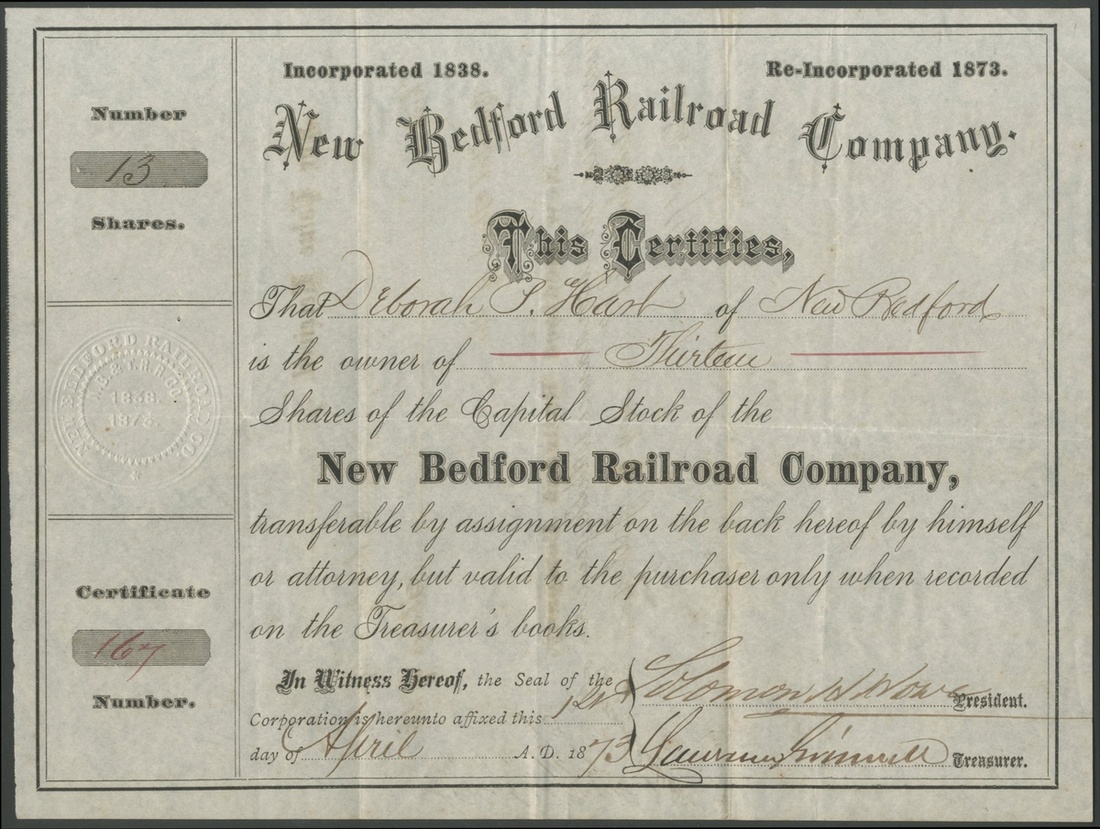 Incorporated 1838.
Re-Incorporated 1873.
New Bedford Railroad Company.
Number
13
Shares.
This Certifies,
That Deborah S. Hart of New Bedford
is the owner of Thirteen
Shares of the Capital Stock of the
New Bedford Railroad Company,
transferable by assignment on the back hereof by himself
or attorney, but valid to the purchaser only when recorded
on the Treasurer's books.
NEW BEDFORD RAILROAD CO.
N.B. & T.R.R.CO.
1838.
1873.
Certificate
167
Number.
In Witness Hereof, the Seal of the
Corporation is hereunto affixed this 1st
day of April A. D. 1873
Solomon President.
Treasurer.